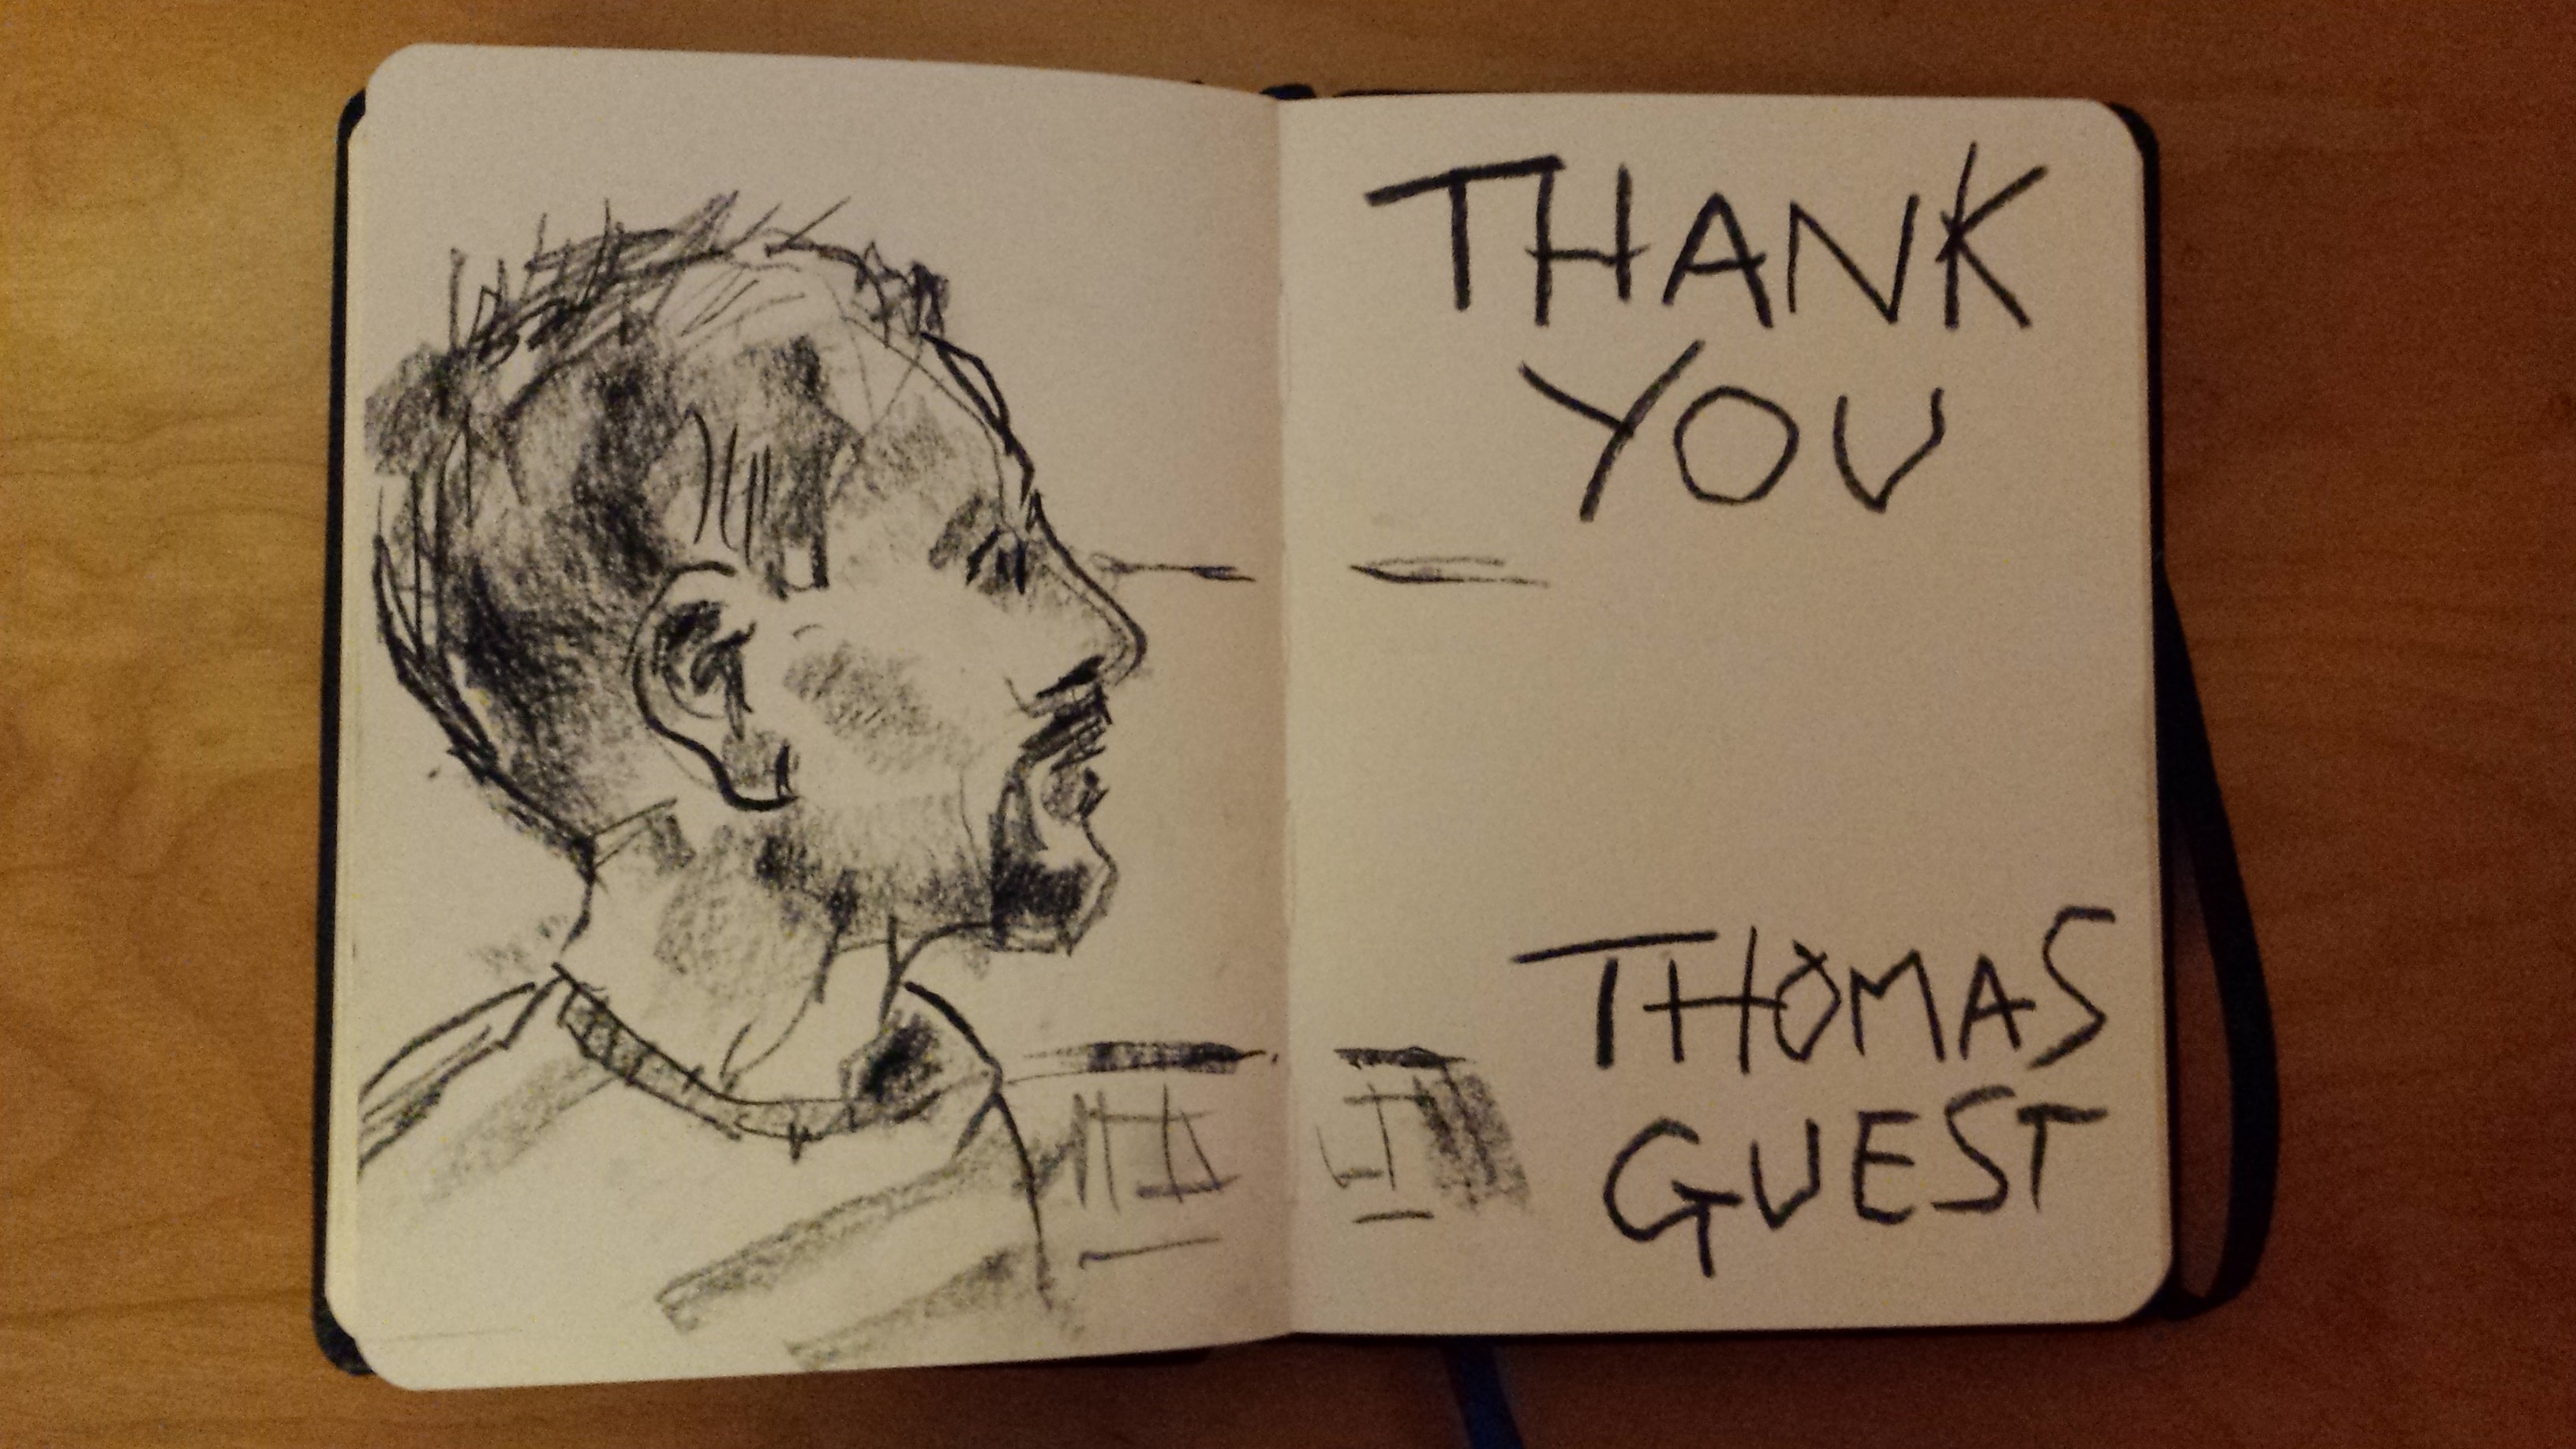 THANK
YOU
THOMAS
GUEST